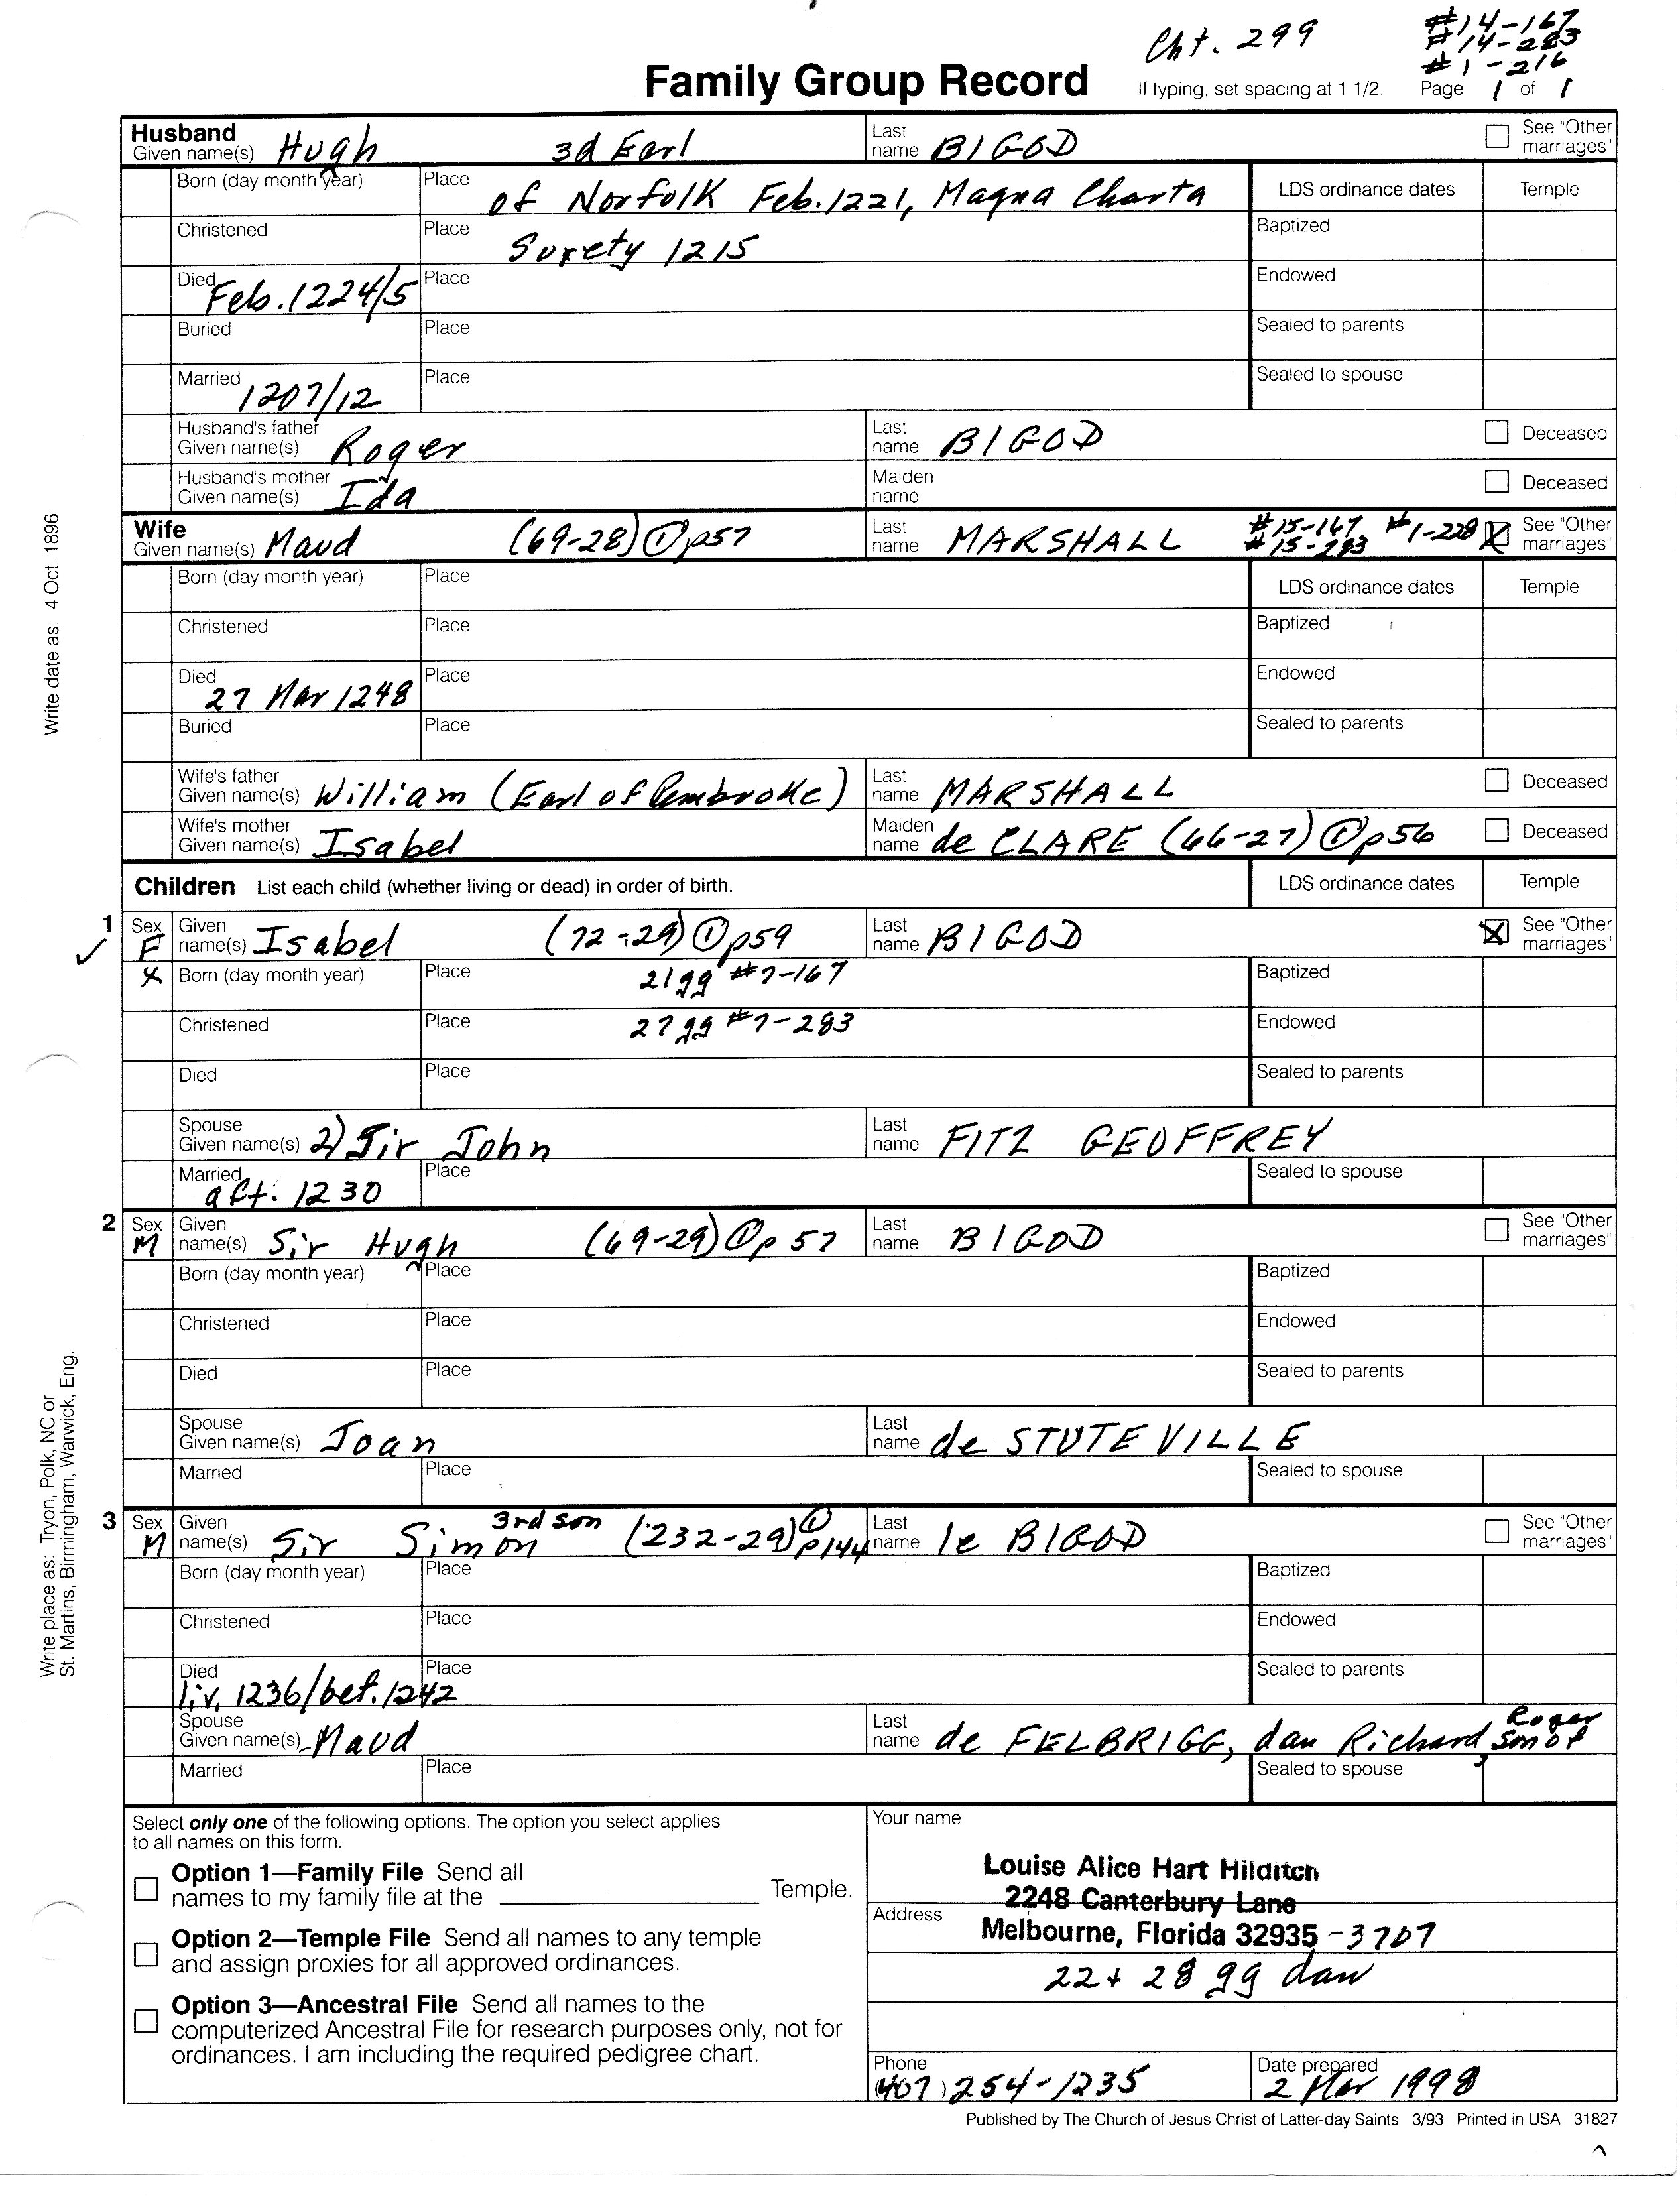 Cht. 299
#14-167
#14-283
#1-216
Family Group Record
If typing, set spacing at 1 1/2. Page 1 of 1
Husband
Given name(s) Hugh 3d Earl Last name BIGOD See "Other marriages"
Born (day month year) Place of Norfolk Feb. 1221, Magna Charta LDS ordinance dates Temple
Christened Place Surety 1215 Baptized
Died Feb. 1224/5 Place Endowed
Buried Place Sealed to parents
Married 1207/12 Place Sealed to spouse
Husband's father Given name(s) Roger Last name BIGOD Deceased
Husband's mother Given name(s) Ida Maiden name Deceased
Wife
Given name(s) Maud (69-28) ① p57 Last name MARSHALL #15-167 #15-283 #1-228 X See "Other marriages"
Born (day month year) Place LDS ordinance dates Temple
Christened Place Baptized
Died 27 Mar 1248 Place Endowed
Buried Place Sealed to parents
Wife's father Given name(s) William (Earl of Pembroke) Last name MARSHALL Deceased
Wife's mother Given name(s) Isabel Maiden name de CLARE (66-27) ① p56 Deceased
Children List each child (whether living or dead) in order of birth. LDS ordinance dates Temple
1 Sex F Given name(s) Isabel (72-29) ① p59 Last name BIGOD X See "Other marriages"
X Born (day month year) Place 21gg #7-167 Baptized
Christened Place 27gg #7-283 Endowed
Died Place Sealed to parents
Spouse Given name(s) 2) Sir John Last name FITZ GEOFFREY
Married aft. 1230 Place Sealed to spouse
2 Sex M Given name(s) Sir Hugh (69-29) ① p 57 Last name BIGOD See "Other marriages"
Born (day month year) Place Baptized
Christened Place Endowed
Died Place Sealed to parents
Spouse Given name(s) Joan Last name de STUTEVILLE
Married Place Sealed to spouse
3 Sex M Given name(s) Sir Simon 3rd son (232-29) ① p144 Last name le BIGOD See "Other marriages"
Born (day month year) Place Baptized
Christened Place Endowed
Died liv. 1236/bef. 1242 Place Sealed to parents
Spouse Given name(s) Maud Last name de FELBRIGG, dau Richard, son of Roger
Married Place Sealed to spouse
Select only one of the following options. The option you select applies
to all names on this form.
Option 1—Family File Send all
names to my family file at the Temple.
Option 2—Temple File Send all names to any temple
and assign proxies for all approved ordinances.
Option 3—Ancestral File Send all names to the
computerized Ancestral File for research purposes only, not for
ordinances. I am including the required pedigree chart.
Your name
Louise Alice Hart Hilditch
2248 Canterbury Lane
Address
Melbourne, Florida 32935-3707
22 + 28 gg dau
Phone (407) 254-1235
Date prepared 2 Mar 1998
Published by The Church of Jesus Christ of Latter-day Saints 3/93 Printed in USA 31827
Write date as: 4 Oct. 1896
Write place as: Tryon, Polk, NC or
St. Martins, Birmingham, Warwick, Eng.